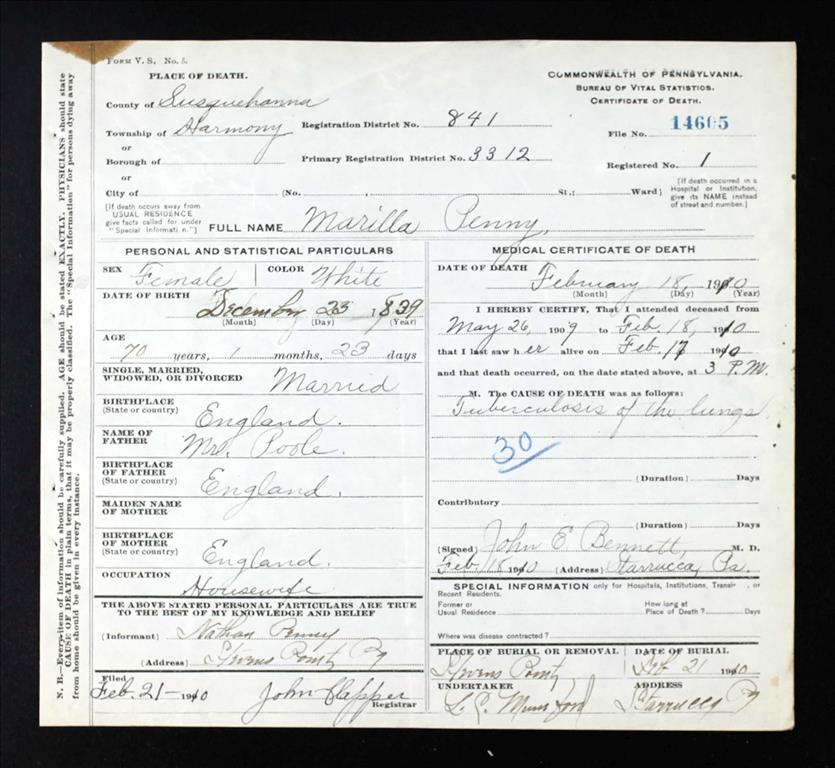 FORM V. S. No. 5.
PLACE OF DEATH.
County of Susquehanna
Township of Harmony
or
Borough of
or
City of
Registration District No. 841
Primary Registration District No. 3312
(No. , St.; Ward)
COMMONWEALTH OF PENNSYLVANIA.
BUREAU OF VITAL STATISTICS.
CERTIFICATE OF DEATH.
File No. 14605
Registered No. 1
[If death occurred in a Hospital or Institution, give its NAME instead of street and number.]
[If death occurs away from USUAL RESIDENCE give facts called for under "Special Information."]
FULL NAME Marilla Penny.
PERSONAL AND STATISTICAL PARTICULARS
SEX Female COLOR White
DATE OF BIRTH December 23 1839
(Month) (Day) (Year)
AGE
70 years, 1 months, 23 days
SINGLE, MARRIED,
WIDOWED, OR DIVORCED Married
BIRTHPLACE
(State or country) England.
NAME OF
FATHER Mr. Poole.
BIRTHPLACE
OF FATHER
(State or country) England.
MAIDEN NAME
OF MOTHER
BIRTHPLACE
OF MOTHER
(State or country) England.
OCCUPATION
Housewife
THE ABOVE STATED PERSONAL PARTICULARS ARE TRUE
TO THE BEST OF MY KNOWLEDGE AND BELIEF
(Informant) Nathan Penny
(Address) Stevens Point Pa
Filed
Feb. 21- 1910 John Clapper
Registrar
MEDICAL CERTIFICATE OF DEATH
DATE OF DEATH February 18, 1910
(Month) (Day) (Year)
I HEREBY CERTIFY, That I attended deceased from
May 26, 1909 to Feb. 18, 1910
that I last saw her alive on Feb 17 1910
and that death occurred, on the date stated above, at 3 P.M.
M. The CAUSE OF DEATH was as follows:
Tuberculosis of the lungs
30
(Duration) Days
Contributory
(Duration) Days
(Signed) John E. Bennett, M. D.
Feb. 18 1910 (Address) Starrucca, Pa.
SPECIAL INFORMATION only for Hospitals, Institutions, Transients, or
Recent Residents.
Former or
Usual Residence
How long at
Place of Death? Days
Where was disease contracted?
PLACE OF BURIAL OR REMOVAL
Stevens Point
DATE OF BURIAL
Feb 21 1910
UNDERTAKER
L. C. Mumford
ADDRESS
Starrucca Pa
N. B.—Every item of information should be carefully supplied. AGE should be stated EXACTLY. PHYSICIANS should state
CAUSE OF DEATH in plain terms, that it may be properly classified. The "Special Information" for persons dying away
from home should be given in every instance.